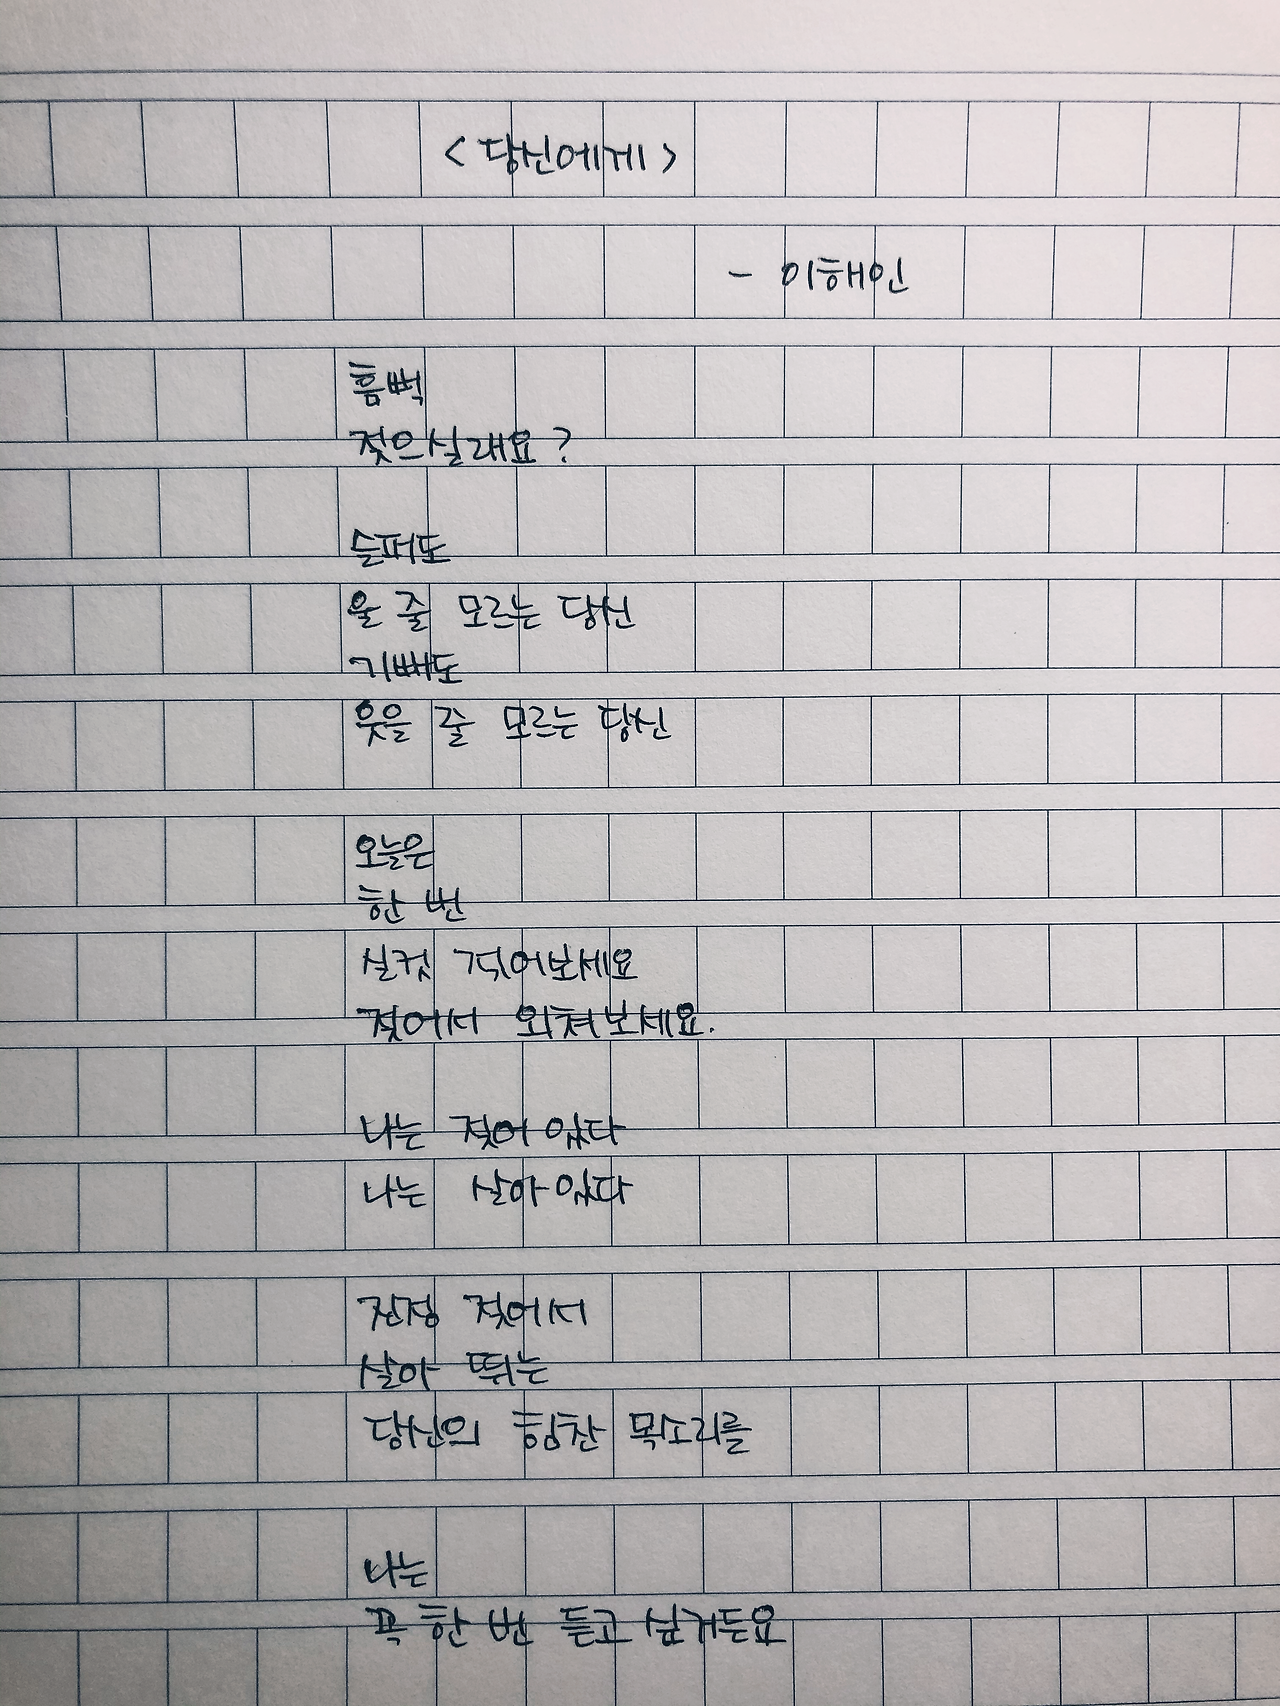 <당신에게>
- 이해인
흠뻑
젖으실래요?
슬퍼도
울 줄 모르는 당신
기뻐도
웃을 줄 모르는 당신
오늘은
한 번
실컷 젖어보세요
젖어서 외쳐보세요.
나는 젖어 있다
나는 살아 있다
진정 젖어서
살아 뛰는
당신의 힘찬 목소리를
나는
꼭 한 번 듣고 싶거든요